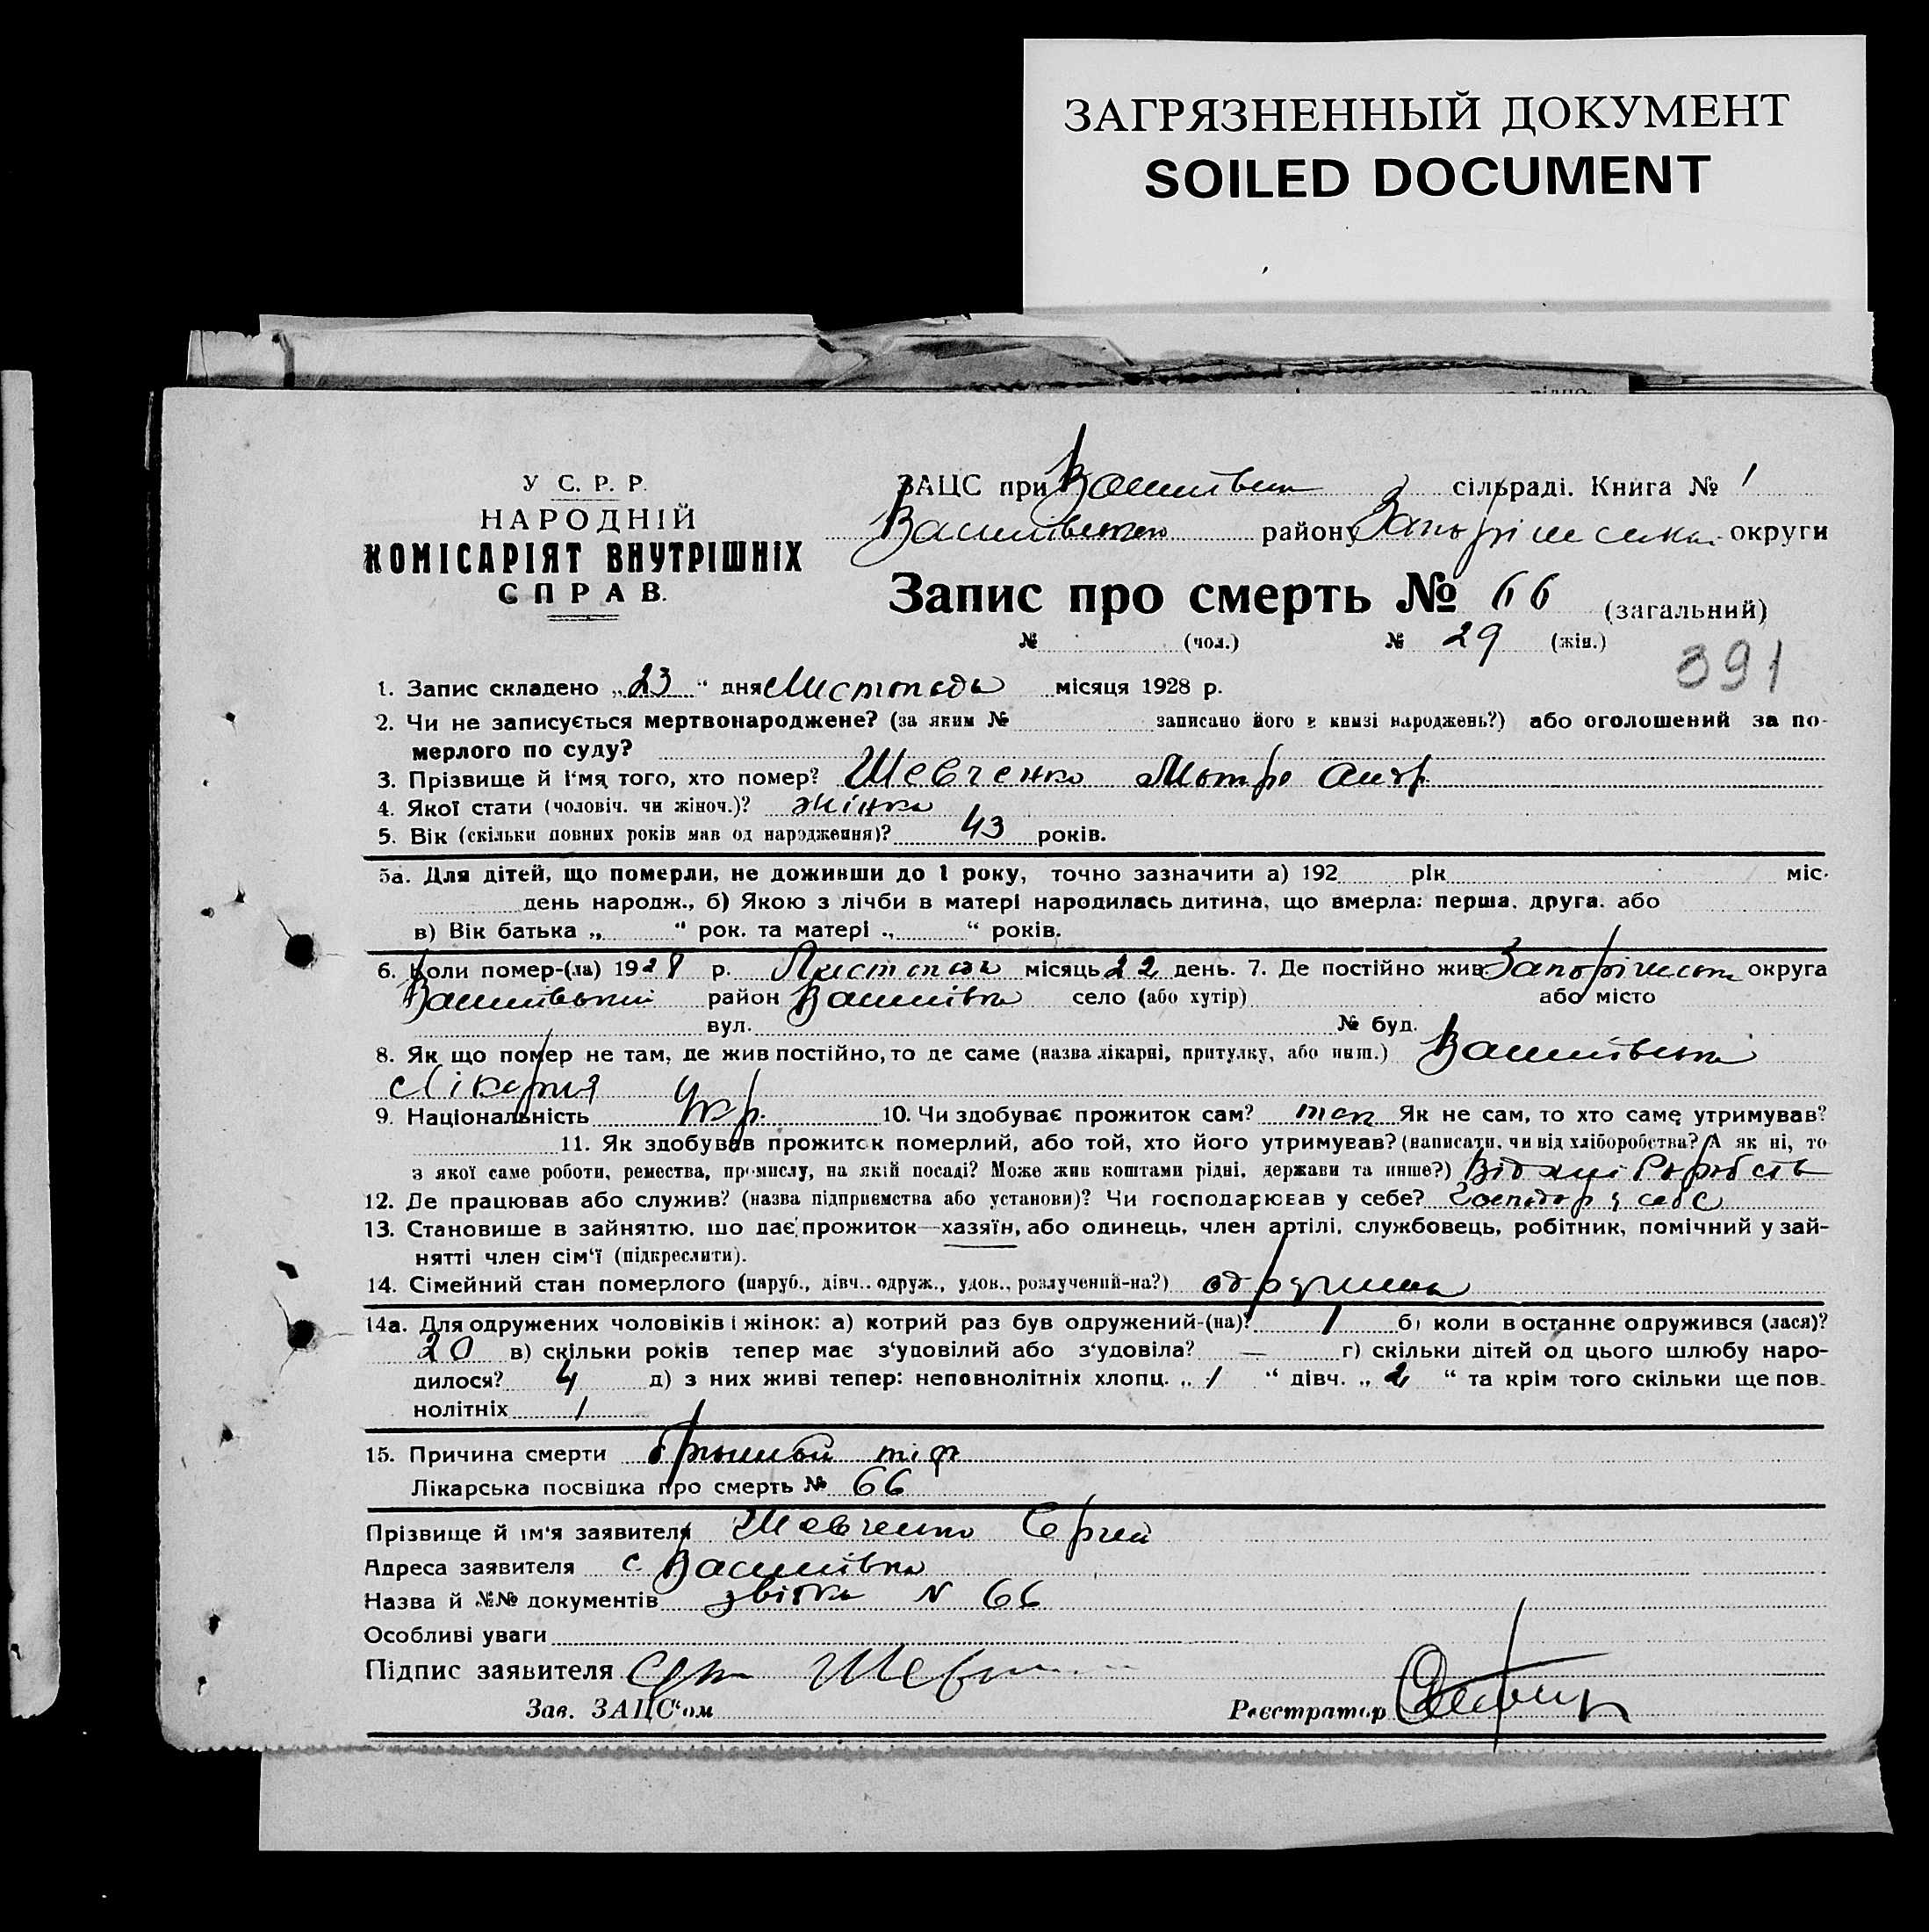 ЗАГРЯЗНЕННЫЙ ДОКУМЕНТ
SOILED DOCUMENT
У. С. Р. Р.
НАРОДНІЙ
КОМІСАРІЯТ ВНУТРІШНІХ
СПРАВ.
ЗАЦС при сільраді. Книга № 1
району округи
Запис про смерть № 66 (загальний)
№ (чол.) № 29 (жін.)
391
1. Запис складено „23“ дня Листопада місяця 1928 р.
2. Чи не записується мертвонароджене? (за яким № записано його в книзі народжень?) або оголошений за по-
мерлого по суду?
3. Прізвище й ім'я того, хто помер? Шевченко Мотря Андр.
4. Якої стати (чоловіч. чи жіноч.)? жінка
5. Вік (скільки повних років мав од народження)? 43 років.
5а. Для дітей, що померли, не доживши до 1 року, точно зазначити а) 192 рік міс.
день народж., б) Якою з лічби в матері народилась дитина, що вмерла: перша, друга, або
в) Вік батька „ “ рок. та матері „ “ років.
6. Коли помер-(ла) 1928 р. Листопада місяць 22 день. 7. Де постійно жив Запоріжська округа
Василівський район Василівка село (або хутір) або місто
вул. № буд.
8. Як що помер не там, де жив постійно, то де саме (назва лікарні, притулку, або инш.) Василівська
Лікарня
9. Національність Укр. 10. Чи здобуває прожиток сам? так Як не сам, то хто саме утримував?
11. Як здобував прожиток померлий, або той, хто його утримував? (написати, чи від хліборобства? А як ні, то
з якої саме роботи, ремества, промислу, на якій посаді? Може жив коштами рідні, держави та инше?) Від
12. Де працював або служив? (назва підприємства або установи)? Чи господарював у себе? Господар у себе
13. Становище в зайняттю, що дає прожиток—хазяїн, або одинець, член артілі, службовець, робітник, помічний у зай-
нятті член сім'ї (підкреслити).
14. Сімейний стан померлого (паруб., дівч., одруж., удов., розлучений-на?) одружена
14а. Для одружених чоловіків і жінок: а) котрий раз був одружений-(на)? 1 б) коли в останнє одружився (лася)?
20 в) скільки років тепер має з'удовілий або з'удовіла? — г) скільки дітей од цього шлюбу наро-
дилося? 4 д) з них живі тепер: неповнолітніх хлопц. „1“ дівч. „2“ та крім того скільки ще пов-
нолітніх 1
15. Причина смерти тіф
Лікарська посвідка про смерть № 66
Прізвище й ім'я заявителя Шевченко Сергій
Адреса заявителя с Василівка
Назва й №№ документів звістка № 66
Особливі уваги
Підпис заявителя
Зав. ЗАЦС'ом Реєстратор